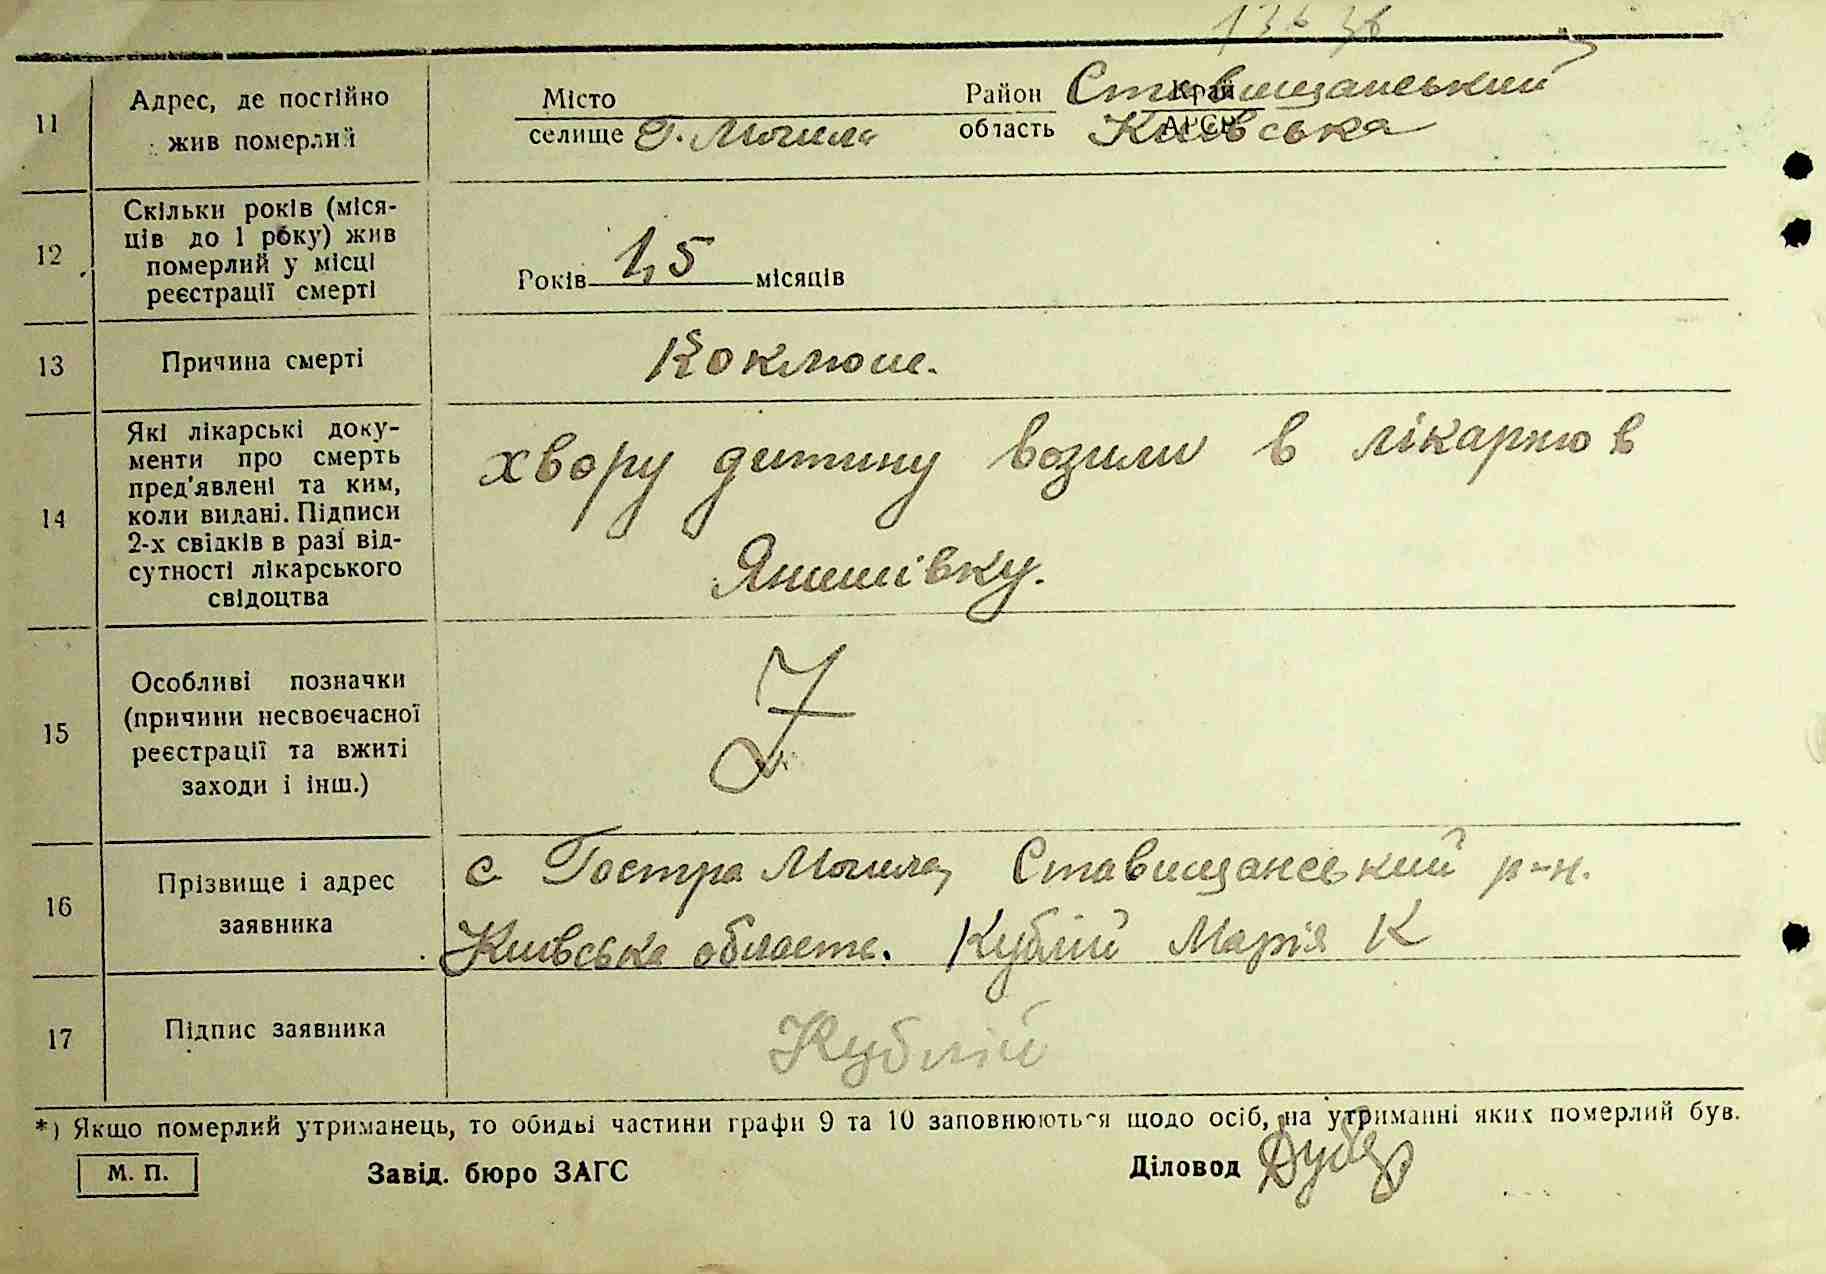 11
Адрес, де постійно
жив померлий
Місто
селище Г. Могила
Район Ставищанський Край
область Київська АРСР
12
Скільки років (міся-
ців до 1 року) жив
померлий у місці
реєстрації смерті
Років 1,5 місяців
13
Причина смерті
Коклюш.
14
Які лікарські доку-
менти про смерть
пред'явлені та ким,
коли видані. Підписи
2-х свідків в разі від-
сутності лікарського
свідоцтва
хвору дитину возили в лікарню в
Янишівку.
15
Особливі позначки
(причини несвоєчасної
реєстрації та вжиті
заходи і інш.)
Z
16
Прізвище і адрес
заявника
с Гостра Могила, Ставищанський р-н.
Київська область. Кублій Марія К
17
Підпис заявника
Кублій
*) Якщо померлий утриманець, то обидві частини графи 9 та 10 заповнюються щодо осіб, на утриманні яких померлий був.
М. П.
Завід. бюро ЗАГС
Діловод